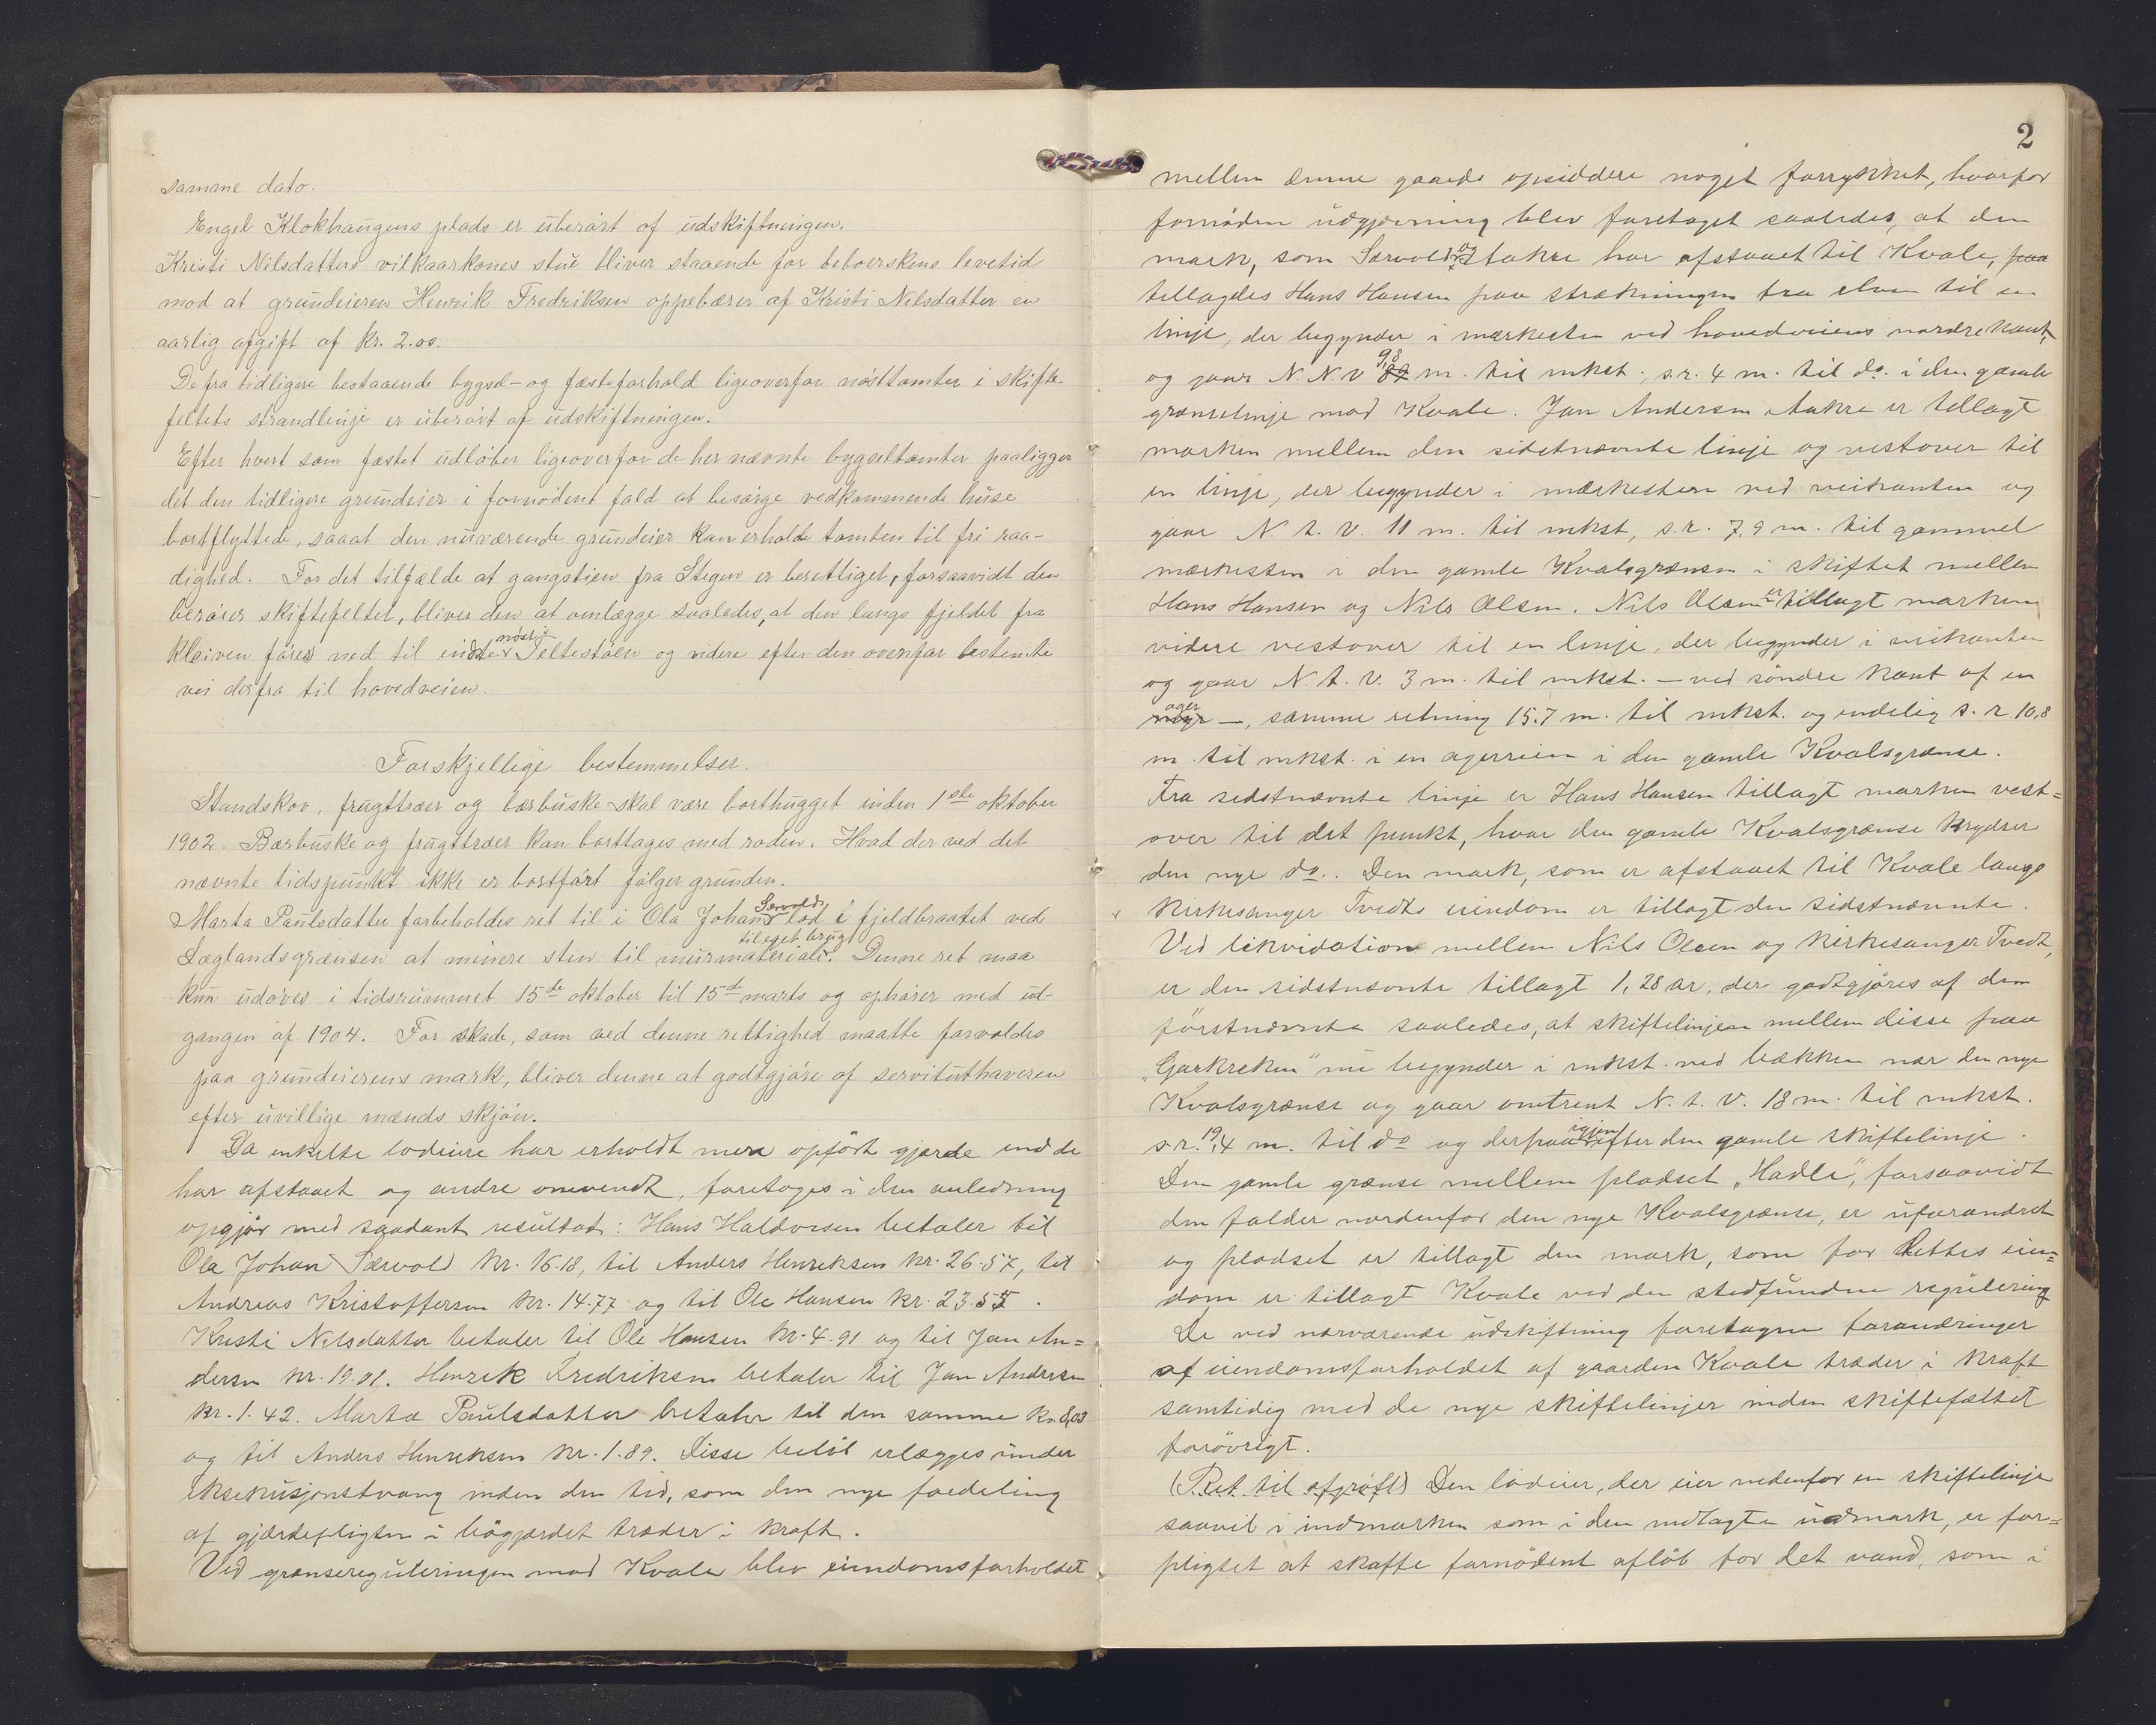 samme dato.
Engel Klokhaugens plads er uberört af udskiftningen.
Kristi Nilsdatters vilkaarkones stue bliver staaende for beboerskens levetid
mod at grundeieren Henrik Fredriksen oppebærer af Kristi Nilsdatter en
aarlig afgift af kr. 2.00.
De fra tidligere bestaaende bygsel- og fæsteforhold ligeoverfor nösttomter i skifte-
feltets strandlinje er uberört af udskiftningen.
Efter hvert som fæstet udlöber ligeoverfor de her nævnte bygseltomter paaligger
det den tidligere grundeier i fornödent fald at besörge vedkommende huse
bortflyttede, saaat den nuværende grundeier kan erholde tomten til fri raa-
dighed. For det tilfælde at gangstien fra Stegen er berettiget, forsaavidt den
berörer skiftefeltet, bliver den at omlægge saaledes, at den langs fjeldet fra
Kleiven föres ned til indre nöst i Teltestöen og videre efter den ovenfor bestemte
vei derfra til hovedveien.
Forskjellige bestemmelser.
Standskov, frugttræer og bærbuske skal være borthugget inden 1ste oktober
1902. Bærbuske og frugttræer kan borttages med roden. Hvad der ved det
nævnte tidspunkt ikke er bortfört fölger grunden.
Marta Paulsdatter forbeholdes ret til i Ola Johan Særvolds lod i fjeldbraatet ved
Læglandsgrænsen at minere sten til murmateriale til eget brug. Denne ret maa
kun udöves i tidsrummet 15de oktober til 15de marts og ophörer med ud-
gangen af 1904. For skade, som ved denne rettighed maatte forvoldes
paa grundeierens mark, bliver denne at godtgjöre af servituthaveren
efter uvillige mænds skjön.
Da enkelte lodeiere har erholdt mere opfört gjærde end de
har afstaaet og andre omvendt, foretoges i den anledning
opgjör med saadant resultat: Hans Haldorsen betaler til
Ola Johan Særvold kr. 16.18, til Anders Henriksen kr. 26.57, til
Andreas Kristoffersen kr. 14.77 og til Ole Hansen kr. 23.55.
Kristi Nilsdatter betaler til Ole Hansen kr. 4.91 og til Jan An=
dersen kr. 19.01. Henrik Fredriksen betaler til Jan Andersen
kr. 1.42. Marta Paulsdatter betaler til den samme kr. 8,03
og til Anders Henriksen kr. 1.89. Disse belöb erlægges under
eksekusjonstvang inden den tid, som den nye fordeling
af gjærdepligten i bögjærdet træder i kraft.
Ved grænsereguleringen mod Kvale blev eiendomsforholdet
2
mellem denne gaards opsiddere noget forrykket, hvorfor
fornöden udgjævning blev foretaget saaledes, at den
mark, som Særvold og Stakre har afstaaet til Kvale, paa
tillagdes Hans Hansen paa strækningen fra elven til en
linje, der begynder i mærkesten ved hovedveiens nordre kant,
og gaar N. N. V 9,8 m. til mkst., s.r. 4 m. til do. i den gamle
grænselinje mod Kvale. Jan Andersen Aakre er tillagt
marken mellem den sidstnævnte linje og vestover til
en linje, der begynder i mærkesten ved veikanten og
gaar N. t. V. 11 m. til mkst, s.r. 7,9 m. til gammel
mærkesten i den gamle Kvalsgrænsen i skiftet mellem
Hans Hansen og Nils Olsen. Nils Olsen er tillagt marken
videre vestover til en linje, der begynder i veikanten
og gaar N. t. V. 3 m. til mkst. — ved söndre kant af en
ager —, samme retning 15.7 m. til mkst. og endelig s. r. 10,8
m. til mkst. i en agerrein i den gamle Kvalsgrænse.
Fra sidstnævnte linje er Hans Hansen tillagt marken vest=
over til det punkt, hvor den gamle Kvalsgrænse krydser
den nye do. Den mark, som er afstaaet til Kvale langs
kirkesanger Tvedts eiendom er tillagt den sidstnævnte.
Ved likvidation mellem Nils Olsen og kirkesanger Tvedt,
er den sidstnævnte tillagt 1,28 ar, der godtgjöres af den
förstnævnte saaledes, at skiftelinjen mellem disse paa
„Garkreken“ nu begynder i mkst. ved bækken nær den nye
Kvalsgrænse og gaar omtrent N. t. V. 18 m. til mkst.
s.r. 19,4 m. til do og derfra igjen efter den gamle skiftelinje.
Den gamle grænse mellem pladset „Hadle“, forsaavidt
den falder nordenfor den nye Kvalsgrænse, er uforandret
og pladset er tillagt den mark, som for dettes eien=
dom er tillagt Kvale ved den stedfundne regulering
De ved nærværende udskiftning foretagne forandringer
af eiendomsforholdet af gaarden Kvale træder i kraft
samtidig med de nye skiftelinjer inden skiftefeltet
forövrigt.
(Ret til afgröft) Den lodeier, der eier nedenfor en skiftelinje
saavel i indmarken som i den medtagte udmark, er for=
pligtet at skaffe fornödent aflöb for det vand, som i